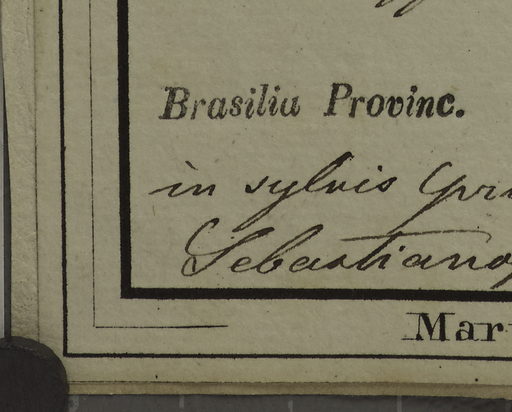 Brasilia Provinc.
in sylvis
Sebastiano
Mar